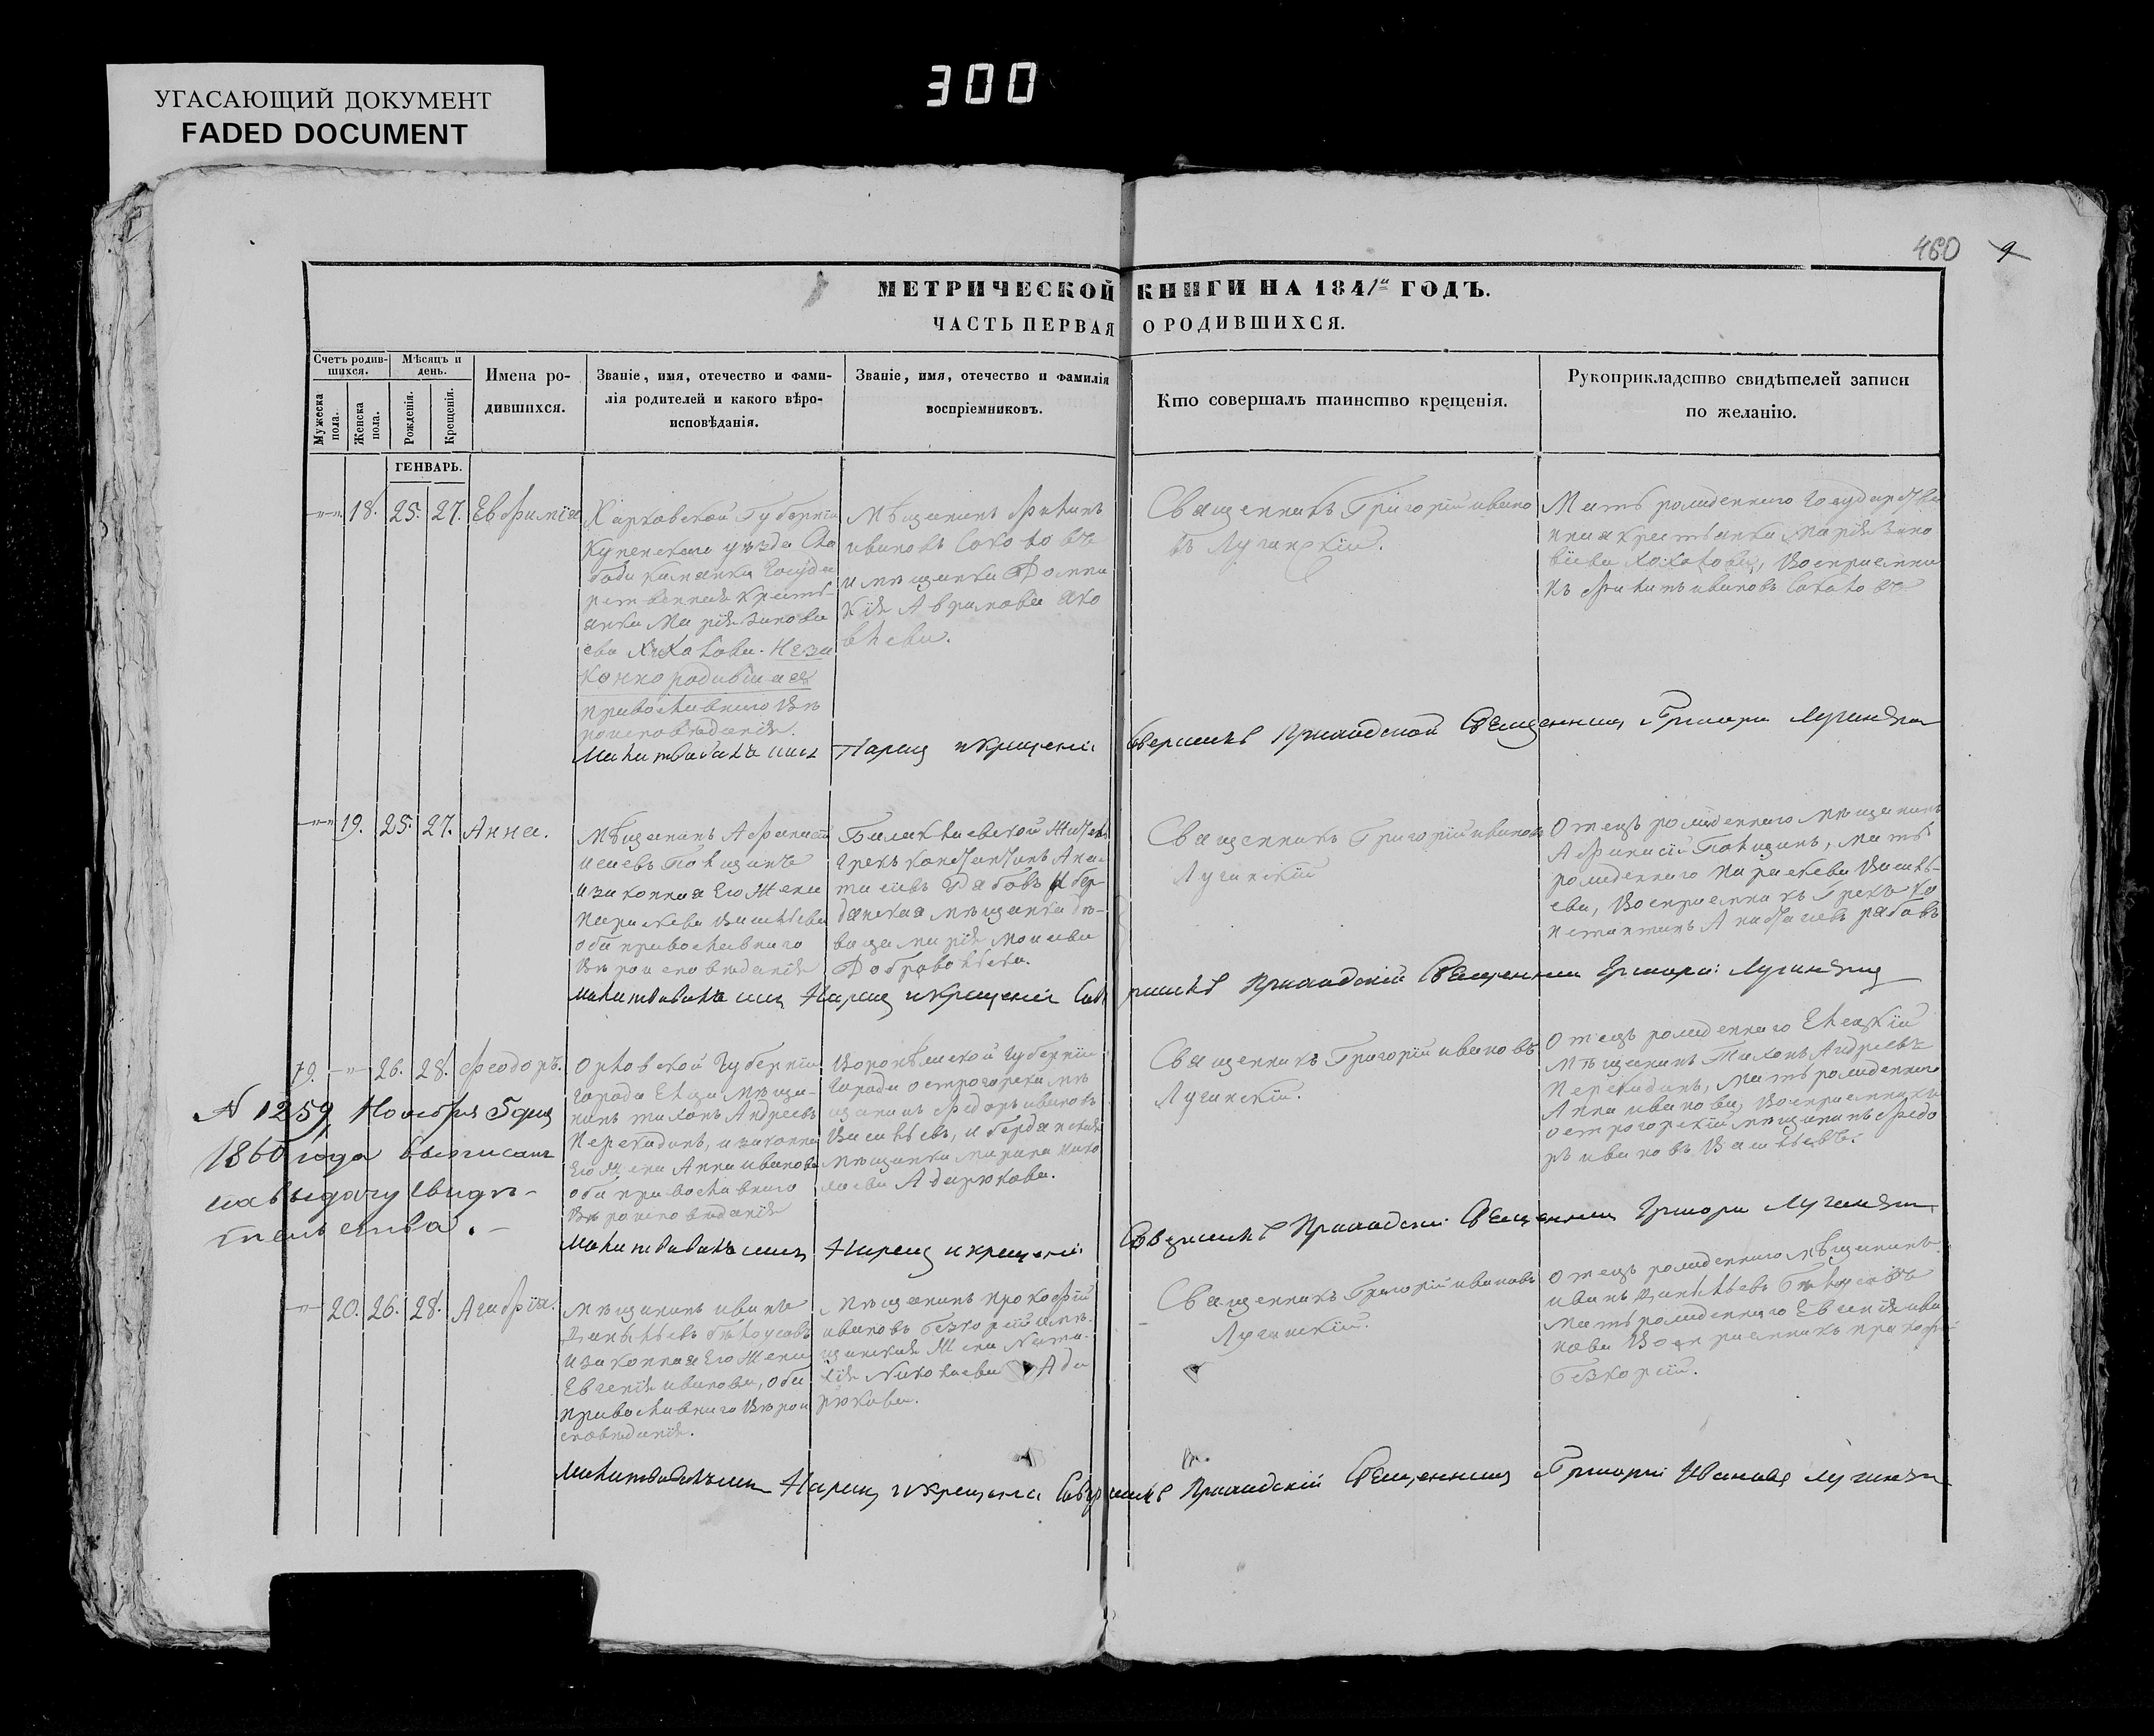 300
УГАСАЮЩИЙ ДОКУМЕНТ
FADED DOCUMENT
460
9
МЕТРИЧЕСКОЙ КНИГИ НА 1841й ГОДЪ.
ЧАСТЬ ПЕРВАЯ О РОДИВШИХСЯ.
Счетъ родив-
шихся.
Мужеска пола.
Женска пола.
Мѣсяцъ и
день.
Рожденія.
Крещенія.
Имена ро-
дившихся.
Званіе, имя, отечество и фами-
лія родителей и какого вѣро-
исповѣданія.
Званіе, имя, отечество и фамилія
воспріемниковъ.
Кто совершалъ таинство крещенія.
Рукоприкладство свидѣтелей записи
по желанію.
ГЕНВАРЬ.
18. 25. 27. Евфимія
Харковской Губерніи
Купенскаго уѣзда Сло
боди Государ
ственная крестья
анка Марія Зинов
ева Незо
коннородившаяся
православного вѣ
роисповѣданія.
Мѣщанинъ Филипъ
ивановъ
и мѣщанка Домни
кія Аврамова Яко
влева.
Священникъ Григорій ивано
въ Лугинскій.
Мать рожденного Государстве
нная крестьянка Марія Зино
віева, Воспріемни
къ Филипъ ивановъ
Молитвовалъ имя Нарец и крещеніе совершилъ Приходской Священник Григорий
19. 25. 27. Анна.
Мѣщанинъ Афанасій
и законная Его Жена
Параскева Васильева
оба православного
Вѣроисповѣданія
Житель
Грекъ Константинъ Анас
тасіевъ Рябовъ и бер
дянская мѣщанка дѣ-
вица Марія Моисеева
Доброволь
Священникъ Григорій ивановъ
Лугинскій
Отецъ рожденного мѣщанинъ
Афанасій мать
рожденного Параскева Василь-
ева, Воспріемникъ Грекъ Ко
нстантинъ Анастасіевъ Рябовъ
Молитвовалъ имя Нарец и крещеніе Совершилъ Приходскій Священник Григори
19. 26. 28. Феодоръ.
Орловской Губерніи
города Ельца Мѣща-
нинъ Тихонъ Андреевъ
и законная
Его Жена Анна иванова
оба православного
Вѣроисповѣданія
Воронѣжской Губерніи
города острогорска мѣ
щанинъ Федоръ ивановъ
Васильевъ, и бердянская
мѣщанка Марина Нико
лаева Адарюкова.
Священникъ Григорій ивановъ
Лугинскій.
Отецъ рожденного Елецкій
Мѣщанинъ Тихонъ Андреевъ
мать рожденного
Анна иванова, Воспріемникъ
острогорскій мѣщанинъ Федо
ръ ивановъ Васильевъ.
N 1259, Ноября 5 дня
1860 года выписанъ
на выдачу свидѣ-
тельства.
Молитвовалъ имя Нарец и крещеніе Совершилъ Приходски Священник Григори
20. 26. 28. Агафія.
Мѣщанинъ иванъ
Данильевъ Бѣлоусовъ
и законная Его Жена
Евгенія иванова, оба
православного Вѣрои
сповѣданія.
Мѣщанинъ прокофій
ивановъ Безкорсій и мѣ-
щанская Жена Ната-
лія Николаева Ада
рюкова.
Священникъ Григорій ивановъ
Лугинскій.
Отецъ рожденного мѣщанинъ
иванъ Данильевъ Бѣлоусовъ
Мать рожденного Евгенія ива
нова Воспріемникъ прокофій
Безкорсій.
Молитвовалъ имя Нарец и крещеніе Совершилъ Приходскій Священник Григорій Иванов